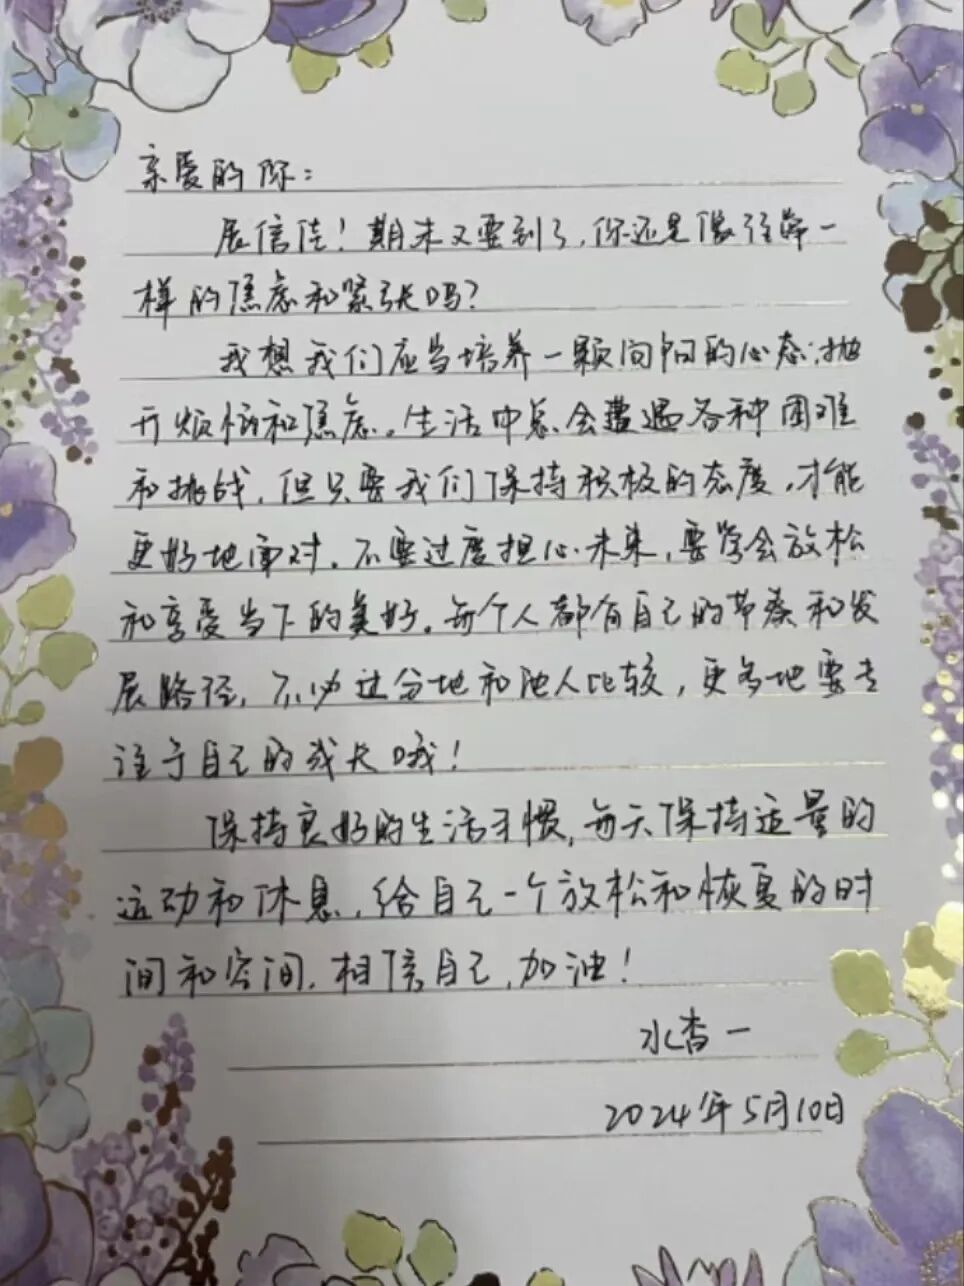 亲爱的你：
展信佳！期末又要到了，你还是像往常一
样的焦虑和紧张吗？
我想我们应当培养一颗向阳的心态，抛
开烦恼和焦虑。生活中总会遭遇各种困难
和挑战，但只要我们保持积极的态度，才能
更好地面对。不要过度担心未来，要学会放松
和享受当下的美好。每个人都有自己的节奏和发
展路径，不必过分地和他人比较，更多地要专
注于自己的成长哦！
保持良好的生活习惯，每天保持适量的
运动和休息，给自己一个放松和恢复的时
间和空间，相信自己，加油！
水杳一
2024年5月10日